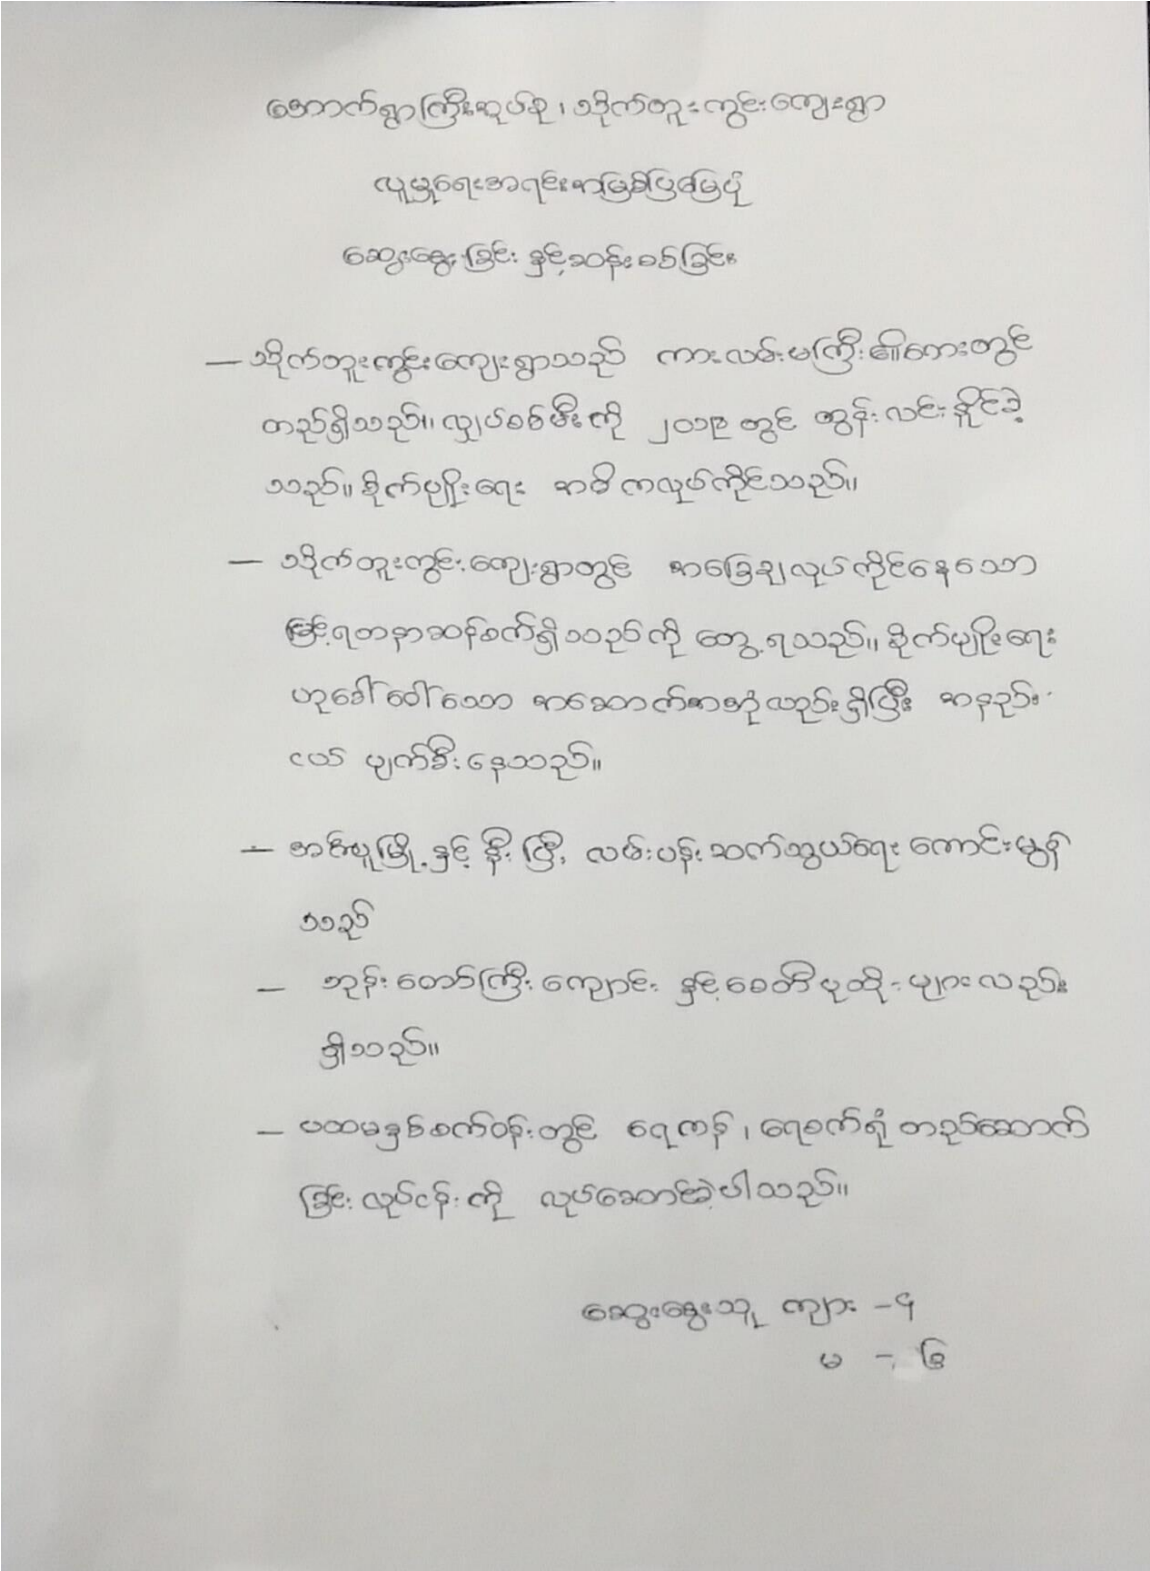 အောက်ရွာကြီးအုပ်စု၊ သိုက်တူးကွင်းကျေးရွာ
လူမှုရေးအရင်းအမြစ်ပြမြေပုံ
ဆွေးနွေးခြင်း နှင့်ဆန်းစစ်ခြင်း
– သိုက်တူးကွင်းကျေးရွာသည် ကားလမ်းမကြီး၏ဘေးတွင်
တည်ရှိသည်။ လျှပ်စစ်မီးကို ၂၀၁၉ တွင် ထွန်းလင်းနိုင်ခဲ့
သည်။ စိုက်ပျိုးရေး အဓိကလုပ်ကိုင်သည်။
– သိုက်တူးကွင်းကျေးရွာတွင် အခြေချလုပ်ကိုင်နေသော
မြင့်ရတနာဆန်စက်ရှိသည်ကို တွေ့ရသည်။ စိုက်ပျိုးရေး
ဟုခေါ်ဝေါ်သော အဆောက်အအုံလည်းရှိပြီး အနည်း
ငယ် ပျက်စီးနေသည်။
– အင်္ဂပူမြို့နှင့် နီးပြီး လမ်းပန်းဆက်သွယ်ရေး ကောင်းမွန်
သည်
– ဘုန်းတော်ကြီးကျောင်း နှင့်စေတီပုထိုးများလည်း
ရှိသည်။
– ပထမနှစ်စက်ဝန်းတွင် ရေကန်၊ ရေစက်ရုံ တည်ဆောက်
ခြင်းလုပ်ငန်းကို လုပ်ဆောင်ခဲ့ပါသည်။
ဆွေးနွေးသူ ကျား – ၄
မ – ၆